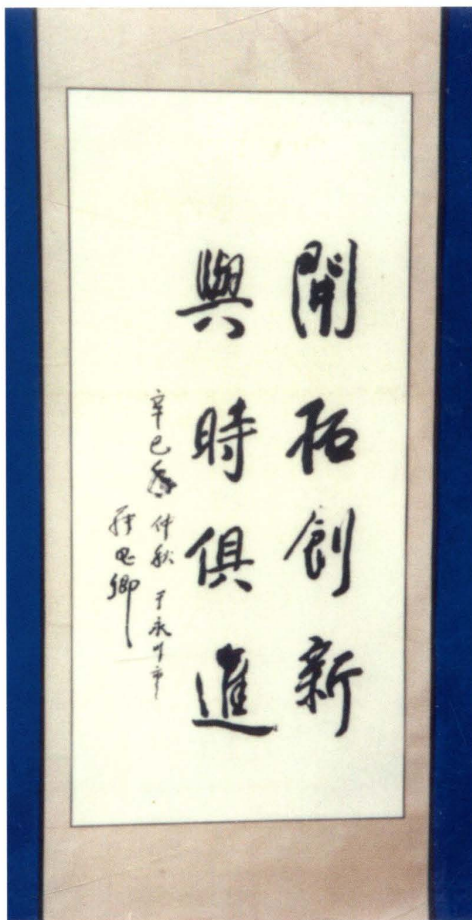 開拓創新
與時俱進
辛巳年仲秋于永
卿